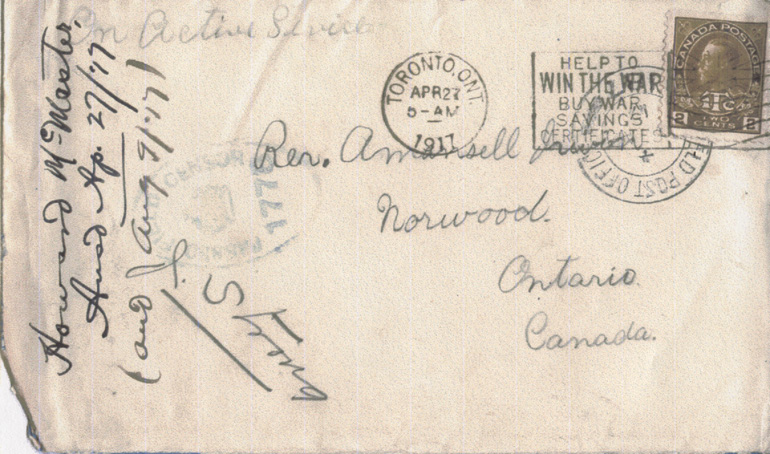 On Active Service
TORONTO, ONT.
APR 27
5-AM
1917
HELP TO
WIN THE WAR
BUY WAR
SAVINGS
CERTIFICATES
CANADA POSTAGE
2 2
FIELD POST OFFICE
CENSOR
1778
Rev.
Norwood.
Ontario.
Canada.
Howard McMaster,
Ansd Ap. 27/17
(and Aug 9/17)